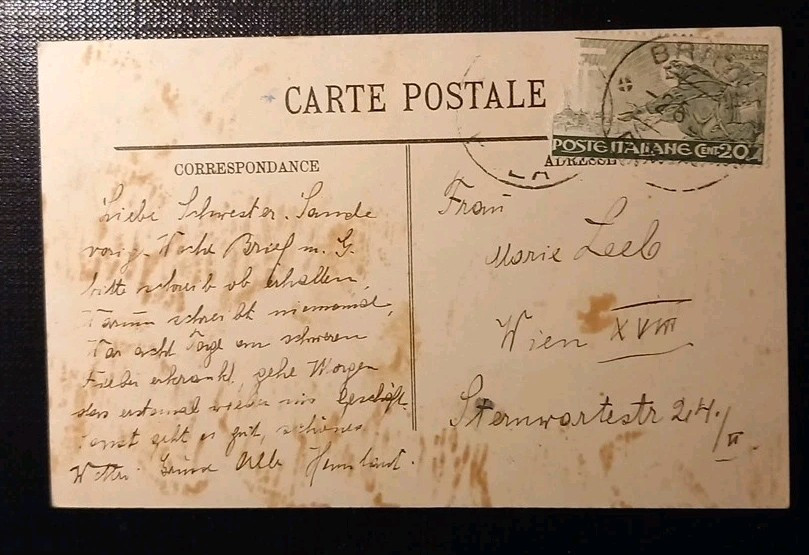 CARTE POSTALE
POSTE ITALIANE CENT 20
CORRESPONDANCE
ADRESSE
Liebe Schwester. Sande
vorig. Woche Brief m. G.
bitte schreib ob erhalten,
Warum schreibt niemand,
War acht Tage an schweren
Fieber erkrankt, gehe Morgen
das erstemal wieder ins Geschäft.
sonst geht es gut, schönes
Wetter. Grüsse Alle
Frau
Marie Leeb
Wien XVIII
Sternwartestr 24./II